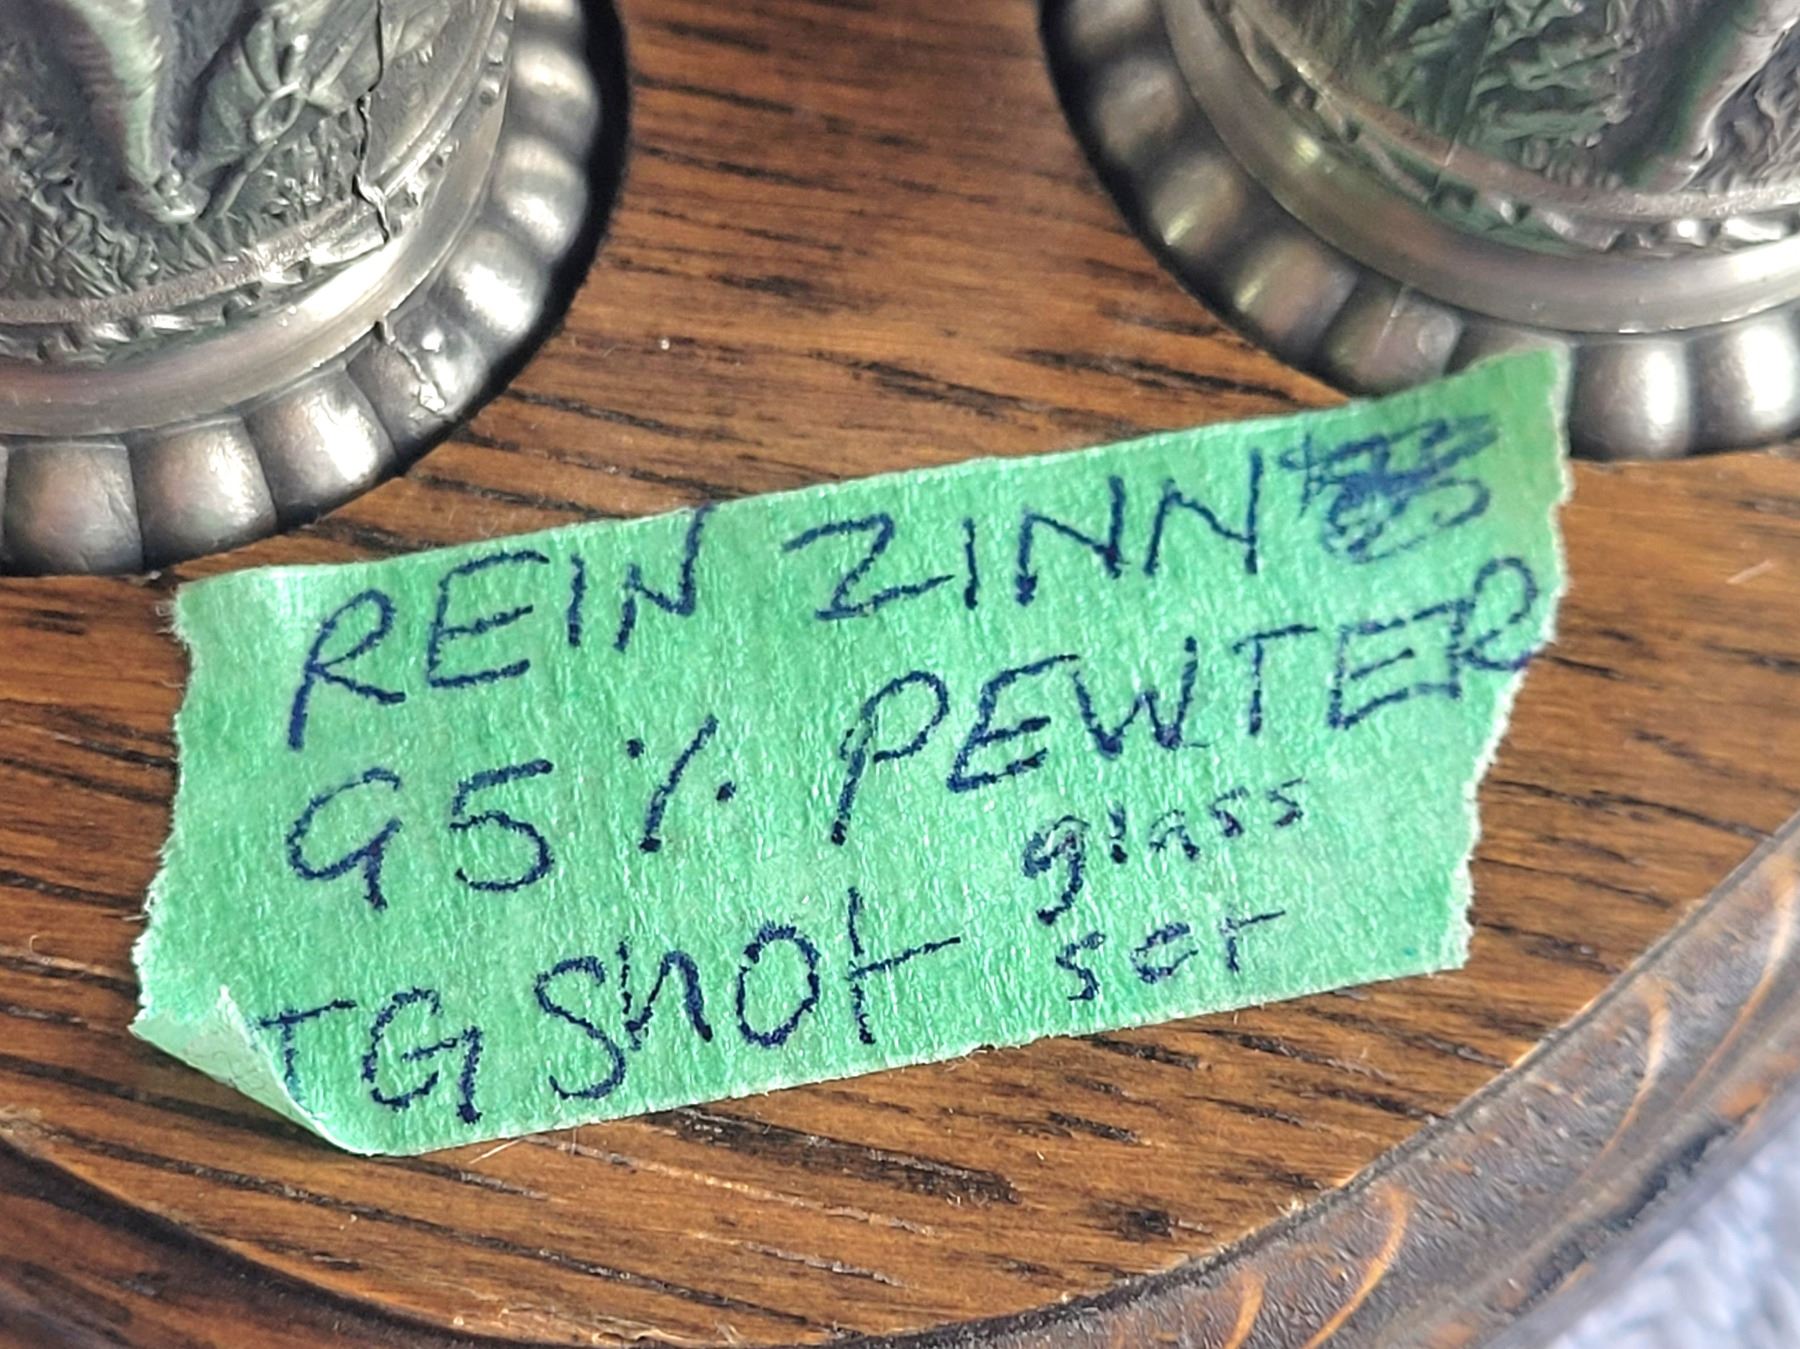 REIN ZINN
95% PEWTER
TG Shot glass
set